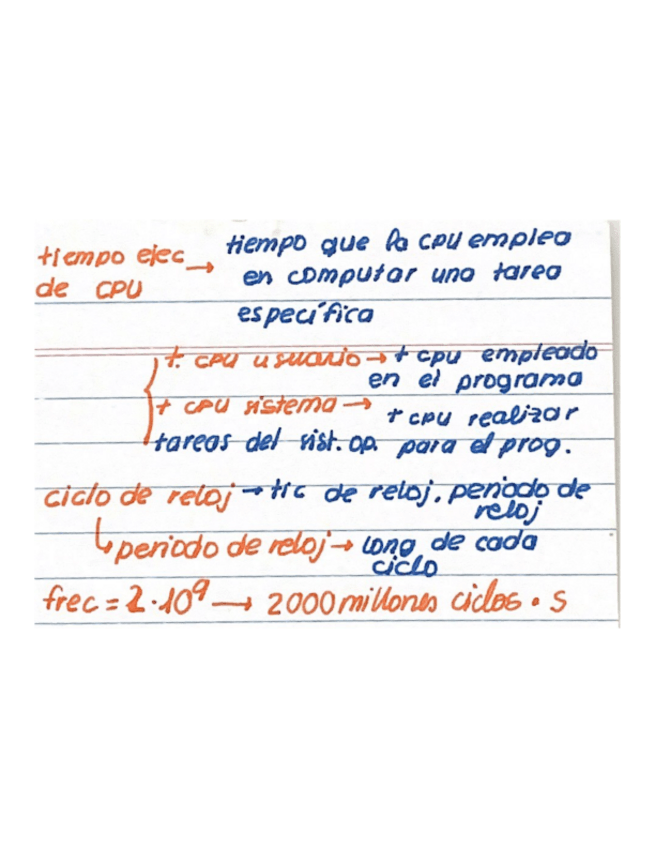 tiempo ejec → tiempo que la CPU emplea
de CPU en computar una tarea
específica
t. CPU usuario → t CPU empleado
en el programa
t CPU sistema → t CPU realizar
tareas del sist. op. para el prog.
ciclo de reloj → tic de reloj, periodo de
reloj
↳ periodo de reloj → long de cada
ciclo
frec = 2·10⁹ → 2000 millones ciclos · s